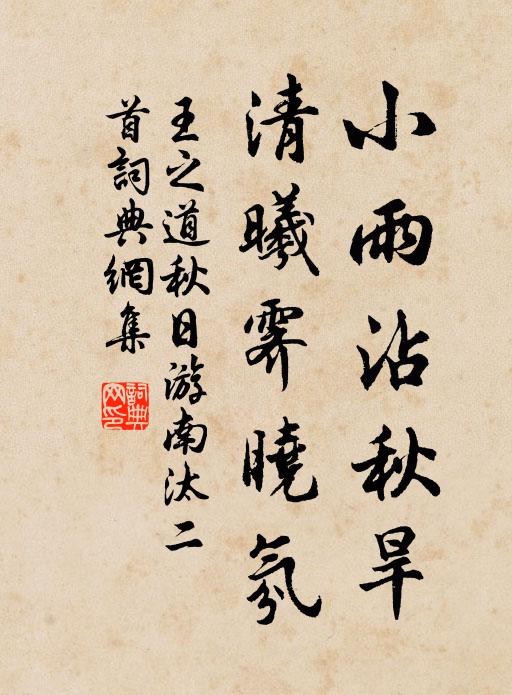 小雨沾秋旱
清曦霽曉氛
王之道秋日游南汰二
首詞典網集
詞典
网印